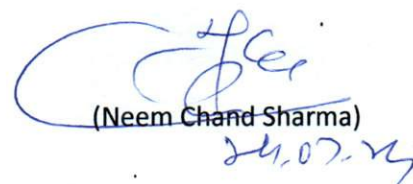 (Neem Chand Sharma)
24.07.24